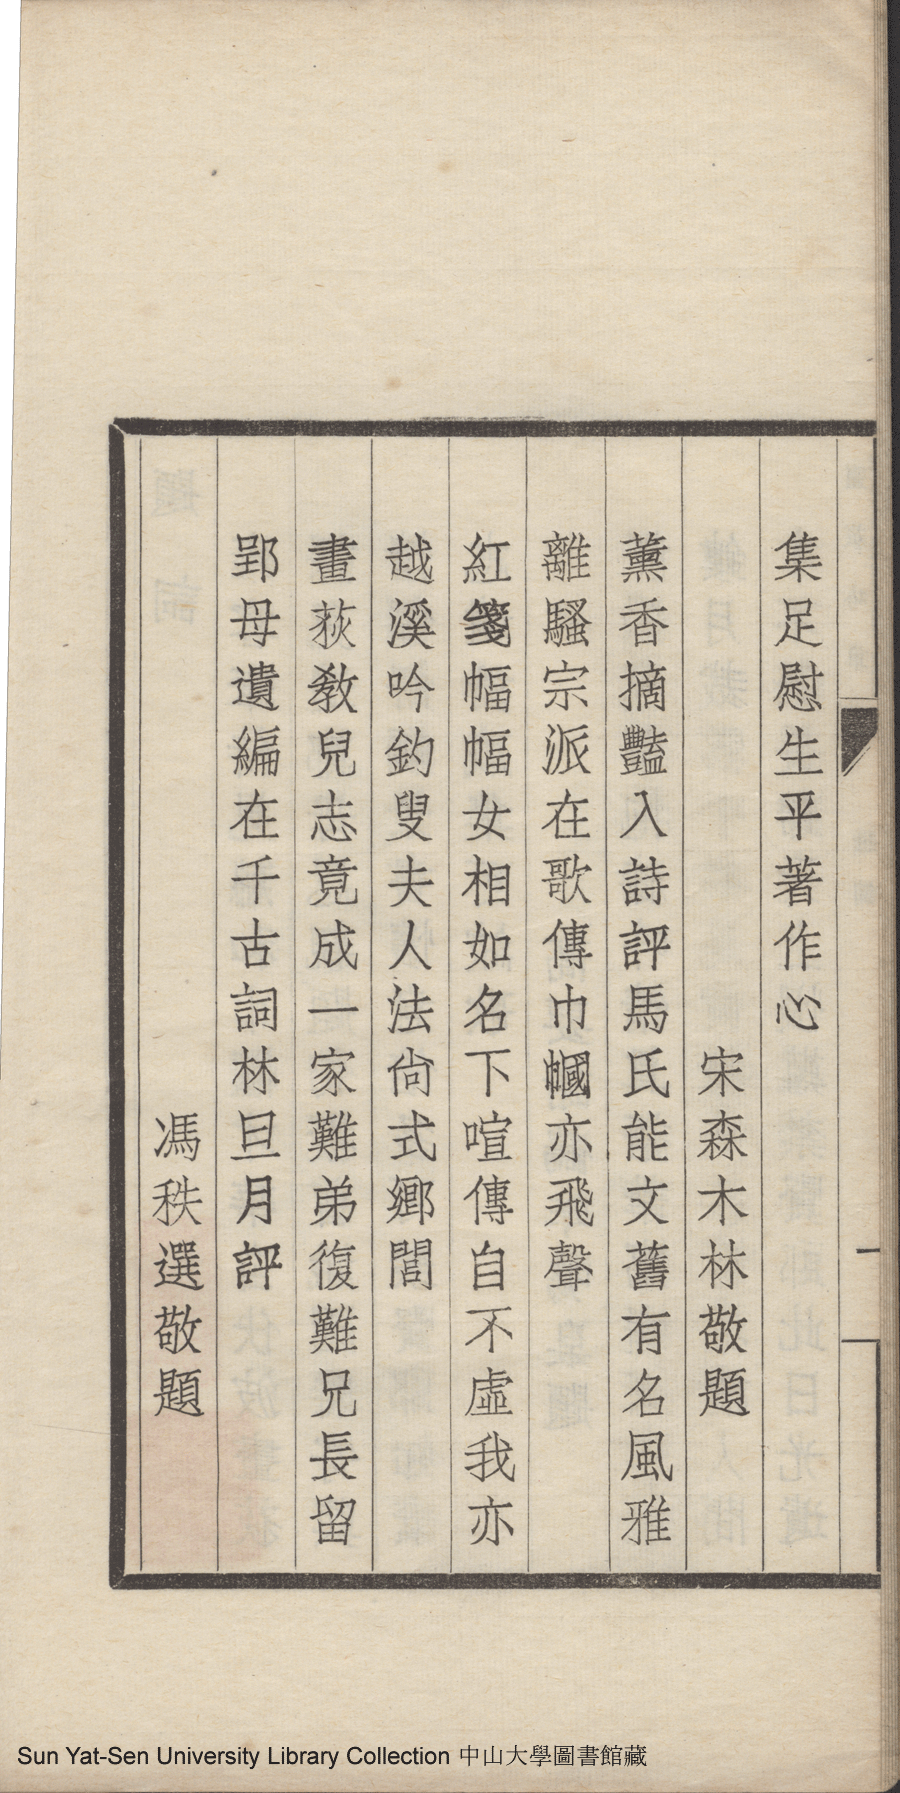 集足慰生平著作心
宋森木林敬題
薰香摘豔入詩評馬氏能文舊有名風雅
離騷宗派在歌傳巾幗亦飛聲
紅箋幅幅女相如名下喧傳自不虛我亦
越溪吟釣叟夫人法尙式鄉閭
畫荻敎兒志竟成一家難弟復難兄長留
郢母遺編在千古詞林旦月評
馮秩選敬題
Sun Yat-Sen University Library Collection 中山大學圖書館藏